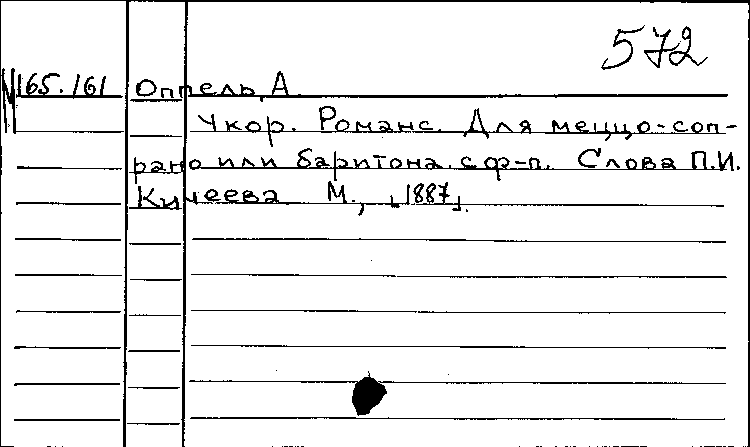 572
N 165.161 Оппель, А.
Укор. Романс. Для меццо-соп-
рано или баритона с ф-п. Слова П.И.
Кичеева М., [1887].